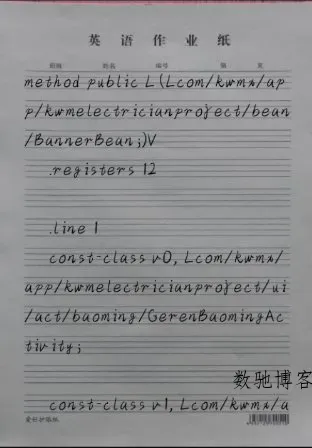 英语作业纸
班级 姓名 编号 第 页
method public L(Lcom/kwmx/ap
p/kwmelectricianproject/bean
/BannerBean;)V
.registers 12
.line 1
const-class v0, Lcom/kwmx/
app/kwmelectricianproject/ui
/act/baoming/GerenBaomingAc
tivity;
数驰博客
const-class v1, Lcom/kwmx/a